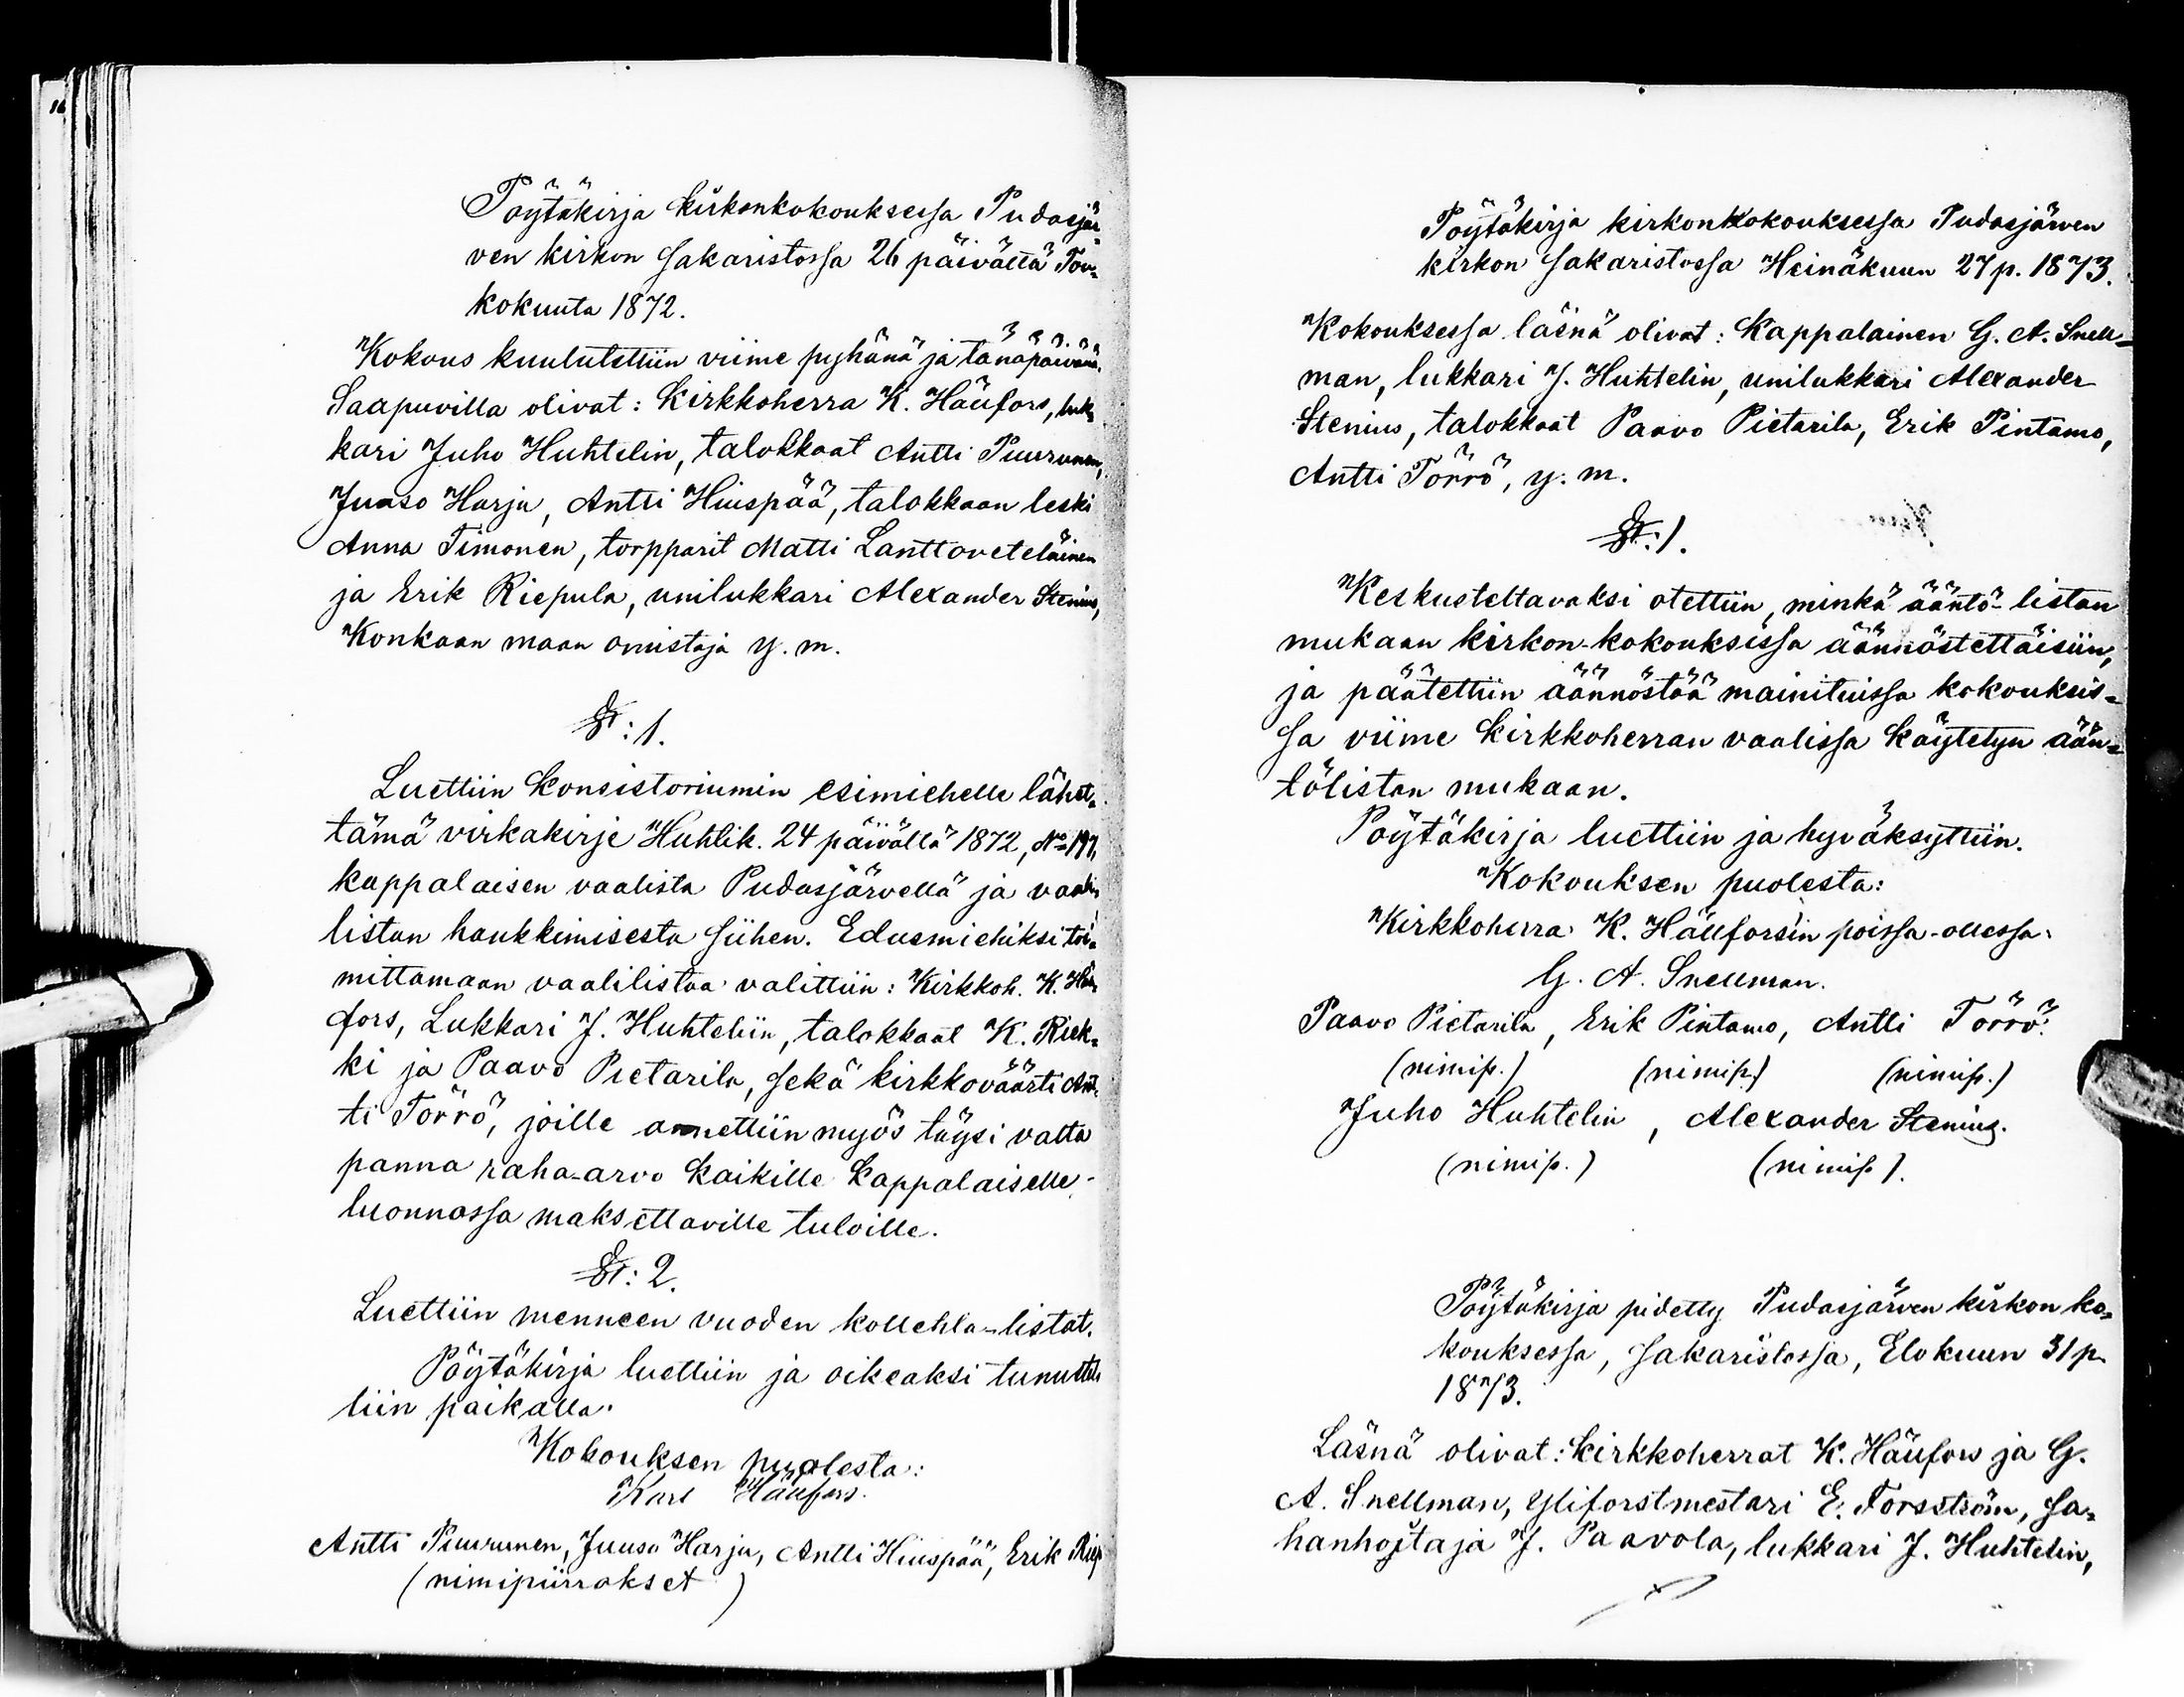 16
Pöytäkirja kirkonkokouksessa Pudasjär-
ven kirkon sakaristossa 26 päivällä Tou-
kokuuta 1872.
Kokous kuulutettiin viime pyhänä ja tänäpäivänä.
Saapuvilla olivat: Kirkkoherra K. Hällfors, luk-
kari Juho Huhtelin, talokkaat Antti Puurunen,
Juuso Harju, Antti Hiuspää, talokkaan leski
Anna Timonen, torpparit Matti Lanttoveteläinen
ja Erik Riepula, unilukkari Alexander Stenius,
Konkaan maan omistaja y. m.
§: 1.
Luettiin Konsistoriumin esimiehelle lähet-
tämä virkakirje Huhtik. 24 päivällä 1872, No 197,
kappalaisen vaalista Pudasjärvellä ja vaali-
listan hankkimisesta siihen. Edusmiehiksi toi-
mittamaan vaalilistaa valittiin: Kirkkoh. K. Häll-
fors, Lukkari J. Huhteliin, talokkaat K. Riek-
ki ja Paavo Pietarila, sekä kirkkoväärti Ant-
ti Törrö, joille annettiin myös täysi valta
panna raha-arvo kaikille kappalaiselle
luonnossa maksettaville tuloille.
§: 2.
Luettiin menneen vuoden kollehta-listat.
Pöytäkirja luettiin ja oikeaksi tunustet-
tiin paikalla.
Kokouksen puolesta:
Karl Hällfors.
Antti Puurunen, Juuso Harju, Antti Hiuspää, Erik Riep
(nimipiirrokset)
Pöytäkirja kirkonkokouksessa Pudasjärven
kirkon sakaristossa Heinäkuun 27 p. 1873.
Kokouksessa läsnä olivat: Kappalainen G. A. Snell-
man, lukkari J. Huhtelin, unilukkari Alexander
Stenius, talokkaat Paavo Pietarila, Erik Pintamo,
Antti Törrö, y. m.
§: 1.
Keskusteltavaksi otettiin, minkä ääntö-listan
mukaan kirkon-kokouksissa äännöstettäisiin,
ja päätettiin äännöstää mainituissa kokouksis-
sa viime Kirkkoherran vaalissa käytetyn ään-
tölistan mukaan.
Pöytäkirja luettiin ja hyväksyttiin.
Kokouksen puolesta:
Kirkkoherra K. Hällforsin poissa-ollessa:
G. A. Snellman.
Paavo Pietarila, Erik Pintamo, Antti Törrö.
(nimip.) (nimip.) (nimip.)
Juho Huhtelin, Alexander Stenius.
(nimip.) (nimip.).
Pöytäkirja pidetty Pudasjärven kirkon ko-
kouksessa, sakaristossa, Elokuun 31 p.
1873.
Läsnä olivat: Kirkkoherrat K. Hällfors ja G.
A. Snellman, yliforstmestari E. Forsström, sa-
hanhoitaja J. Paavola, lukkari J. Huhtelin,